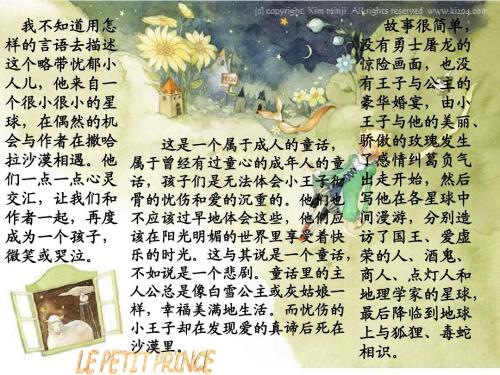 (c) copyright. Kim minji. All rights reserved. www.kizo4.com
我不知道用怎
样的言语去描述
这个略带忧郁小
人儿，他来自一
个很小很小的星
球，在偶然的机
会与作者在撒哈
拉沙漠相遇。他
们一点一点心灵
交汇，让我们和
作者一起，再度
成为一个孩子，
微笑或哭泣。
这是一个属于成人的童话，
属于曾经有过童心的成年人的童
话，孩子们是无法体会小王子彻
骨的忧伤和爱的沉重的。他们也
不应该过早地体会这些，他们应
该在阳光明媚的世界里享受着快
乐的时光。这与其说是一个童话，
不如说是一个悲剧。童话里的主
人公总是像白雪公主或灰姑娘一
样，幸福美满地生活。而忧伤的
小王子却在发现爱的真谛后死在
沙漠里。
故事很简单，
没有勇士屠龙的
惊险画面，也没
有王子与公主的
豪华婚宴，由小
王子与他的美丽、
骄傲的玫瑰发生
了感情纠葛负气
出走开始，然后
写他在各星球中
间漫游，分别造
访了国王、爱虚
荣的人、酒鬼、
商人、点灯人和
地理学家的星球，
最后降临到地球
上与狐狸、毒蛇
相识。
LE PETIT PRINCE